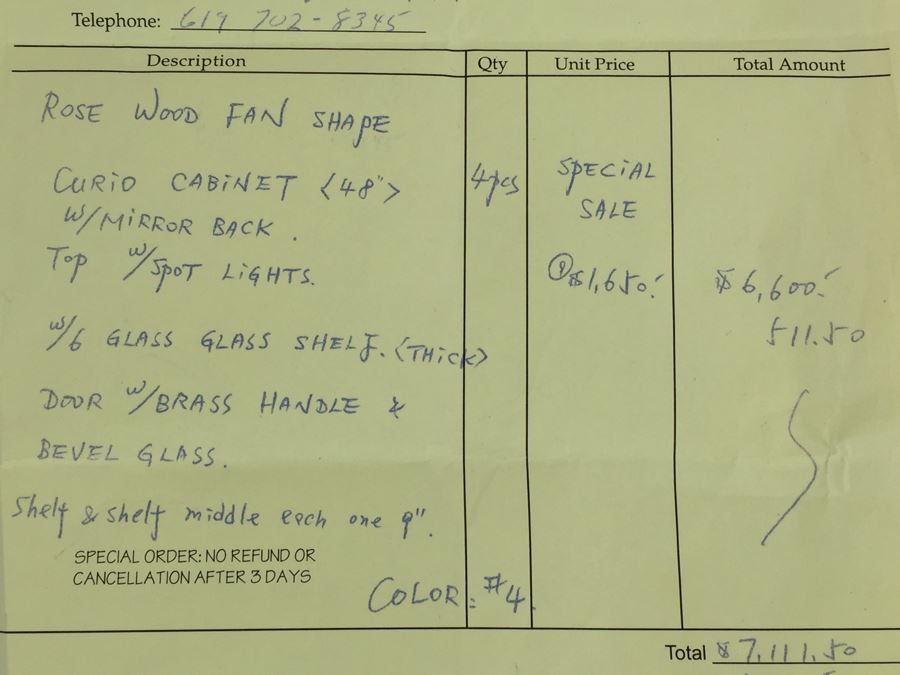 Telephone: 619 702-8345
Description Qty Unit Price Total Amount
ROSE WOOD FAN SHAPE
CURIO CABINET <48"> 4pcs SPECIAL
W/MIRROR BACK. SALE
TOP W/SPOT LIGHTS. @$1,650.- $6,600.-
511.50
W/6 GLASS GLASS SHELF. <THICK>
DOOR W/BRASS HANDLE &
BEVEL GLASS.
Shelf & shelf middle each one 9".
SPECIAL ORDER: NO REFUND OR
CANCELLATION AFTER 3 DAYS
COLOR: #4.
Total $7,111.50